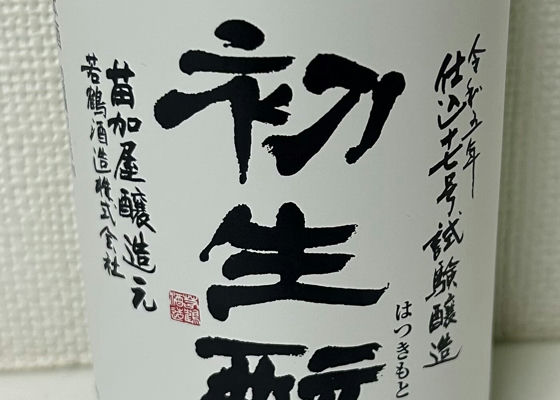 令和五年
仕込十七号試験醸造
初生酛
はつきもと
苗加屋醸造元
若鶴酒造株式会社